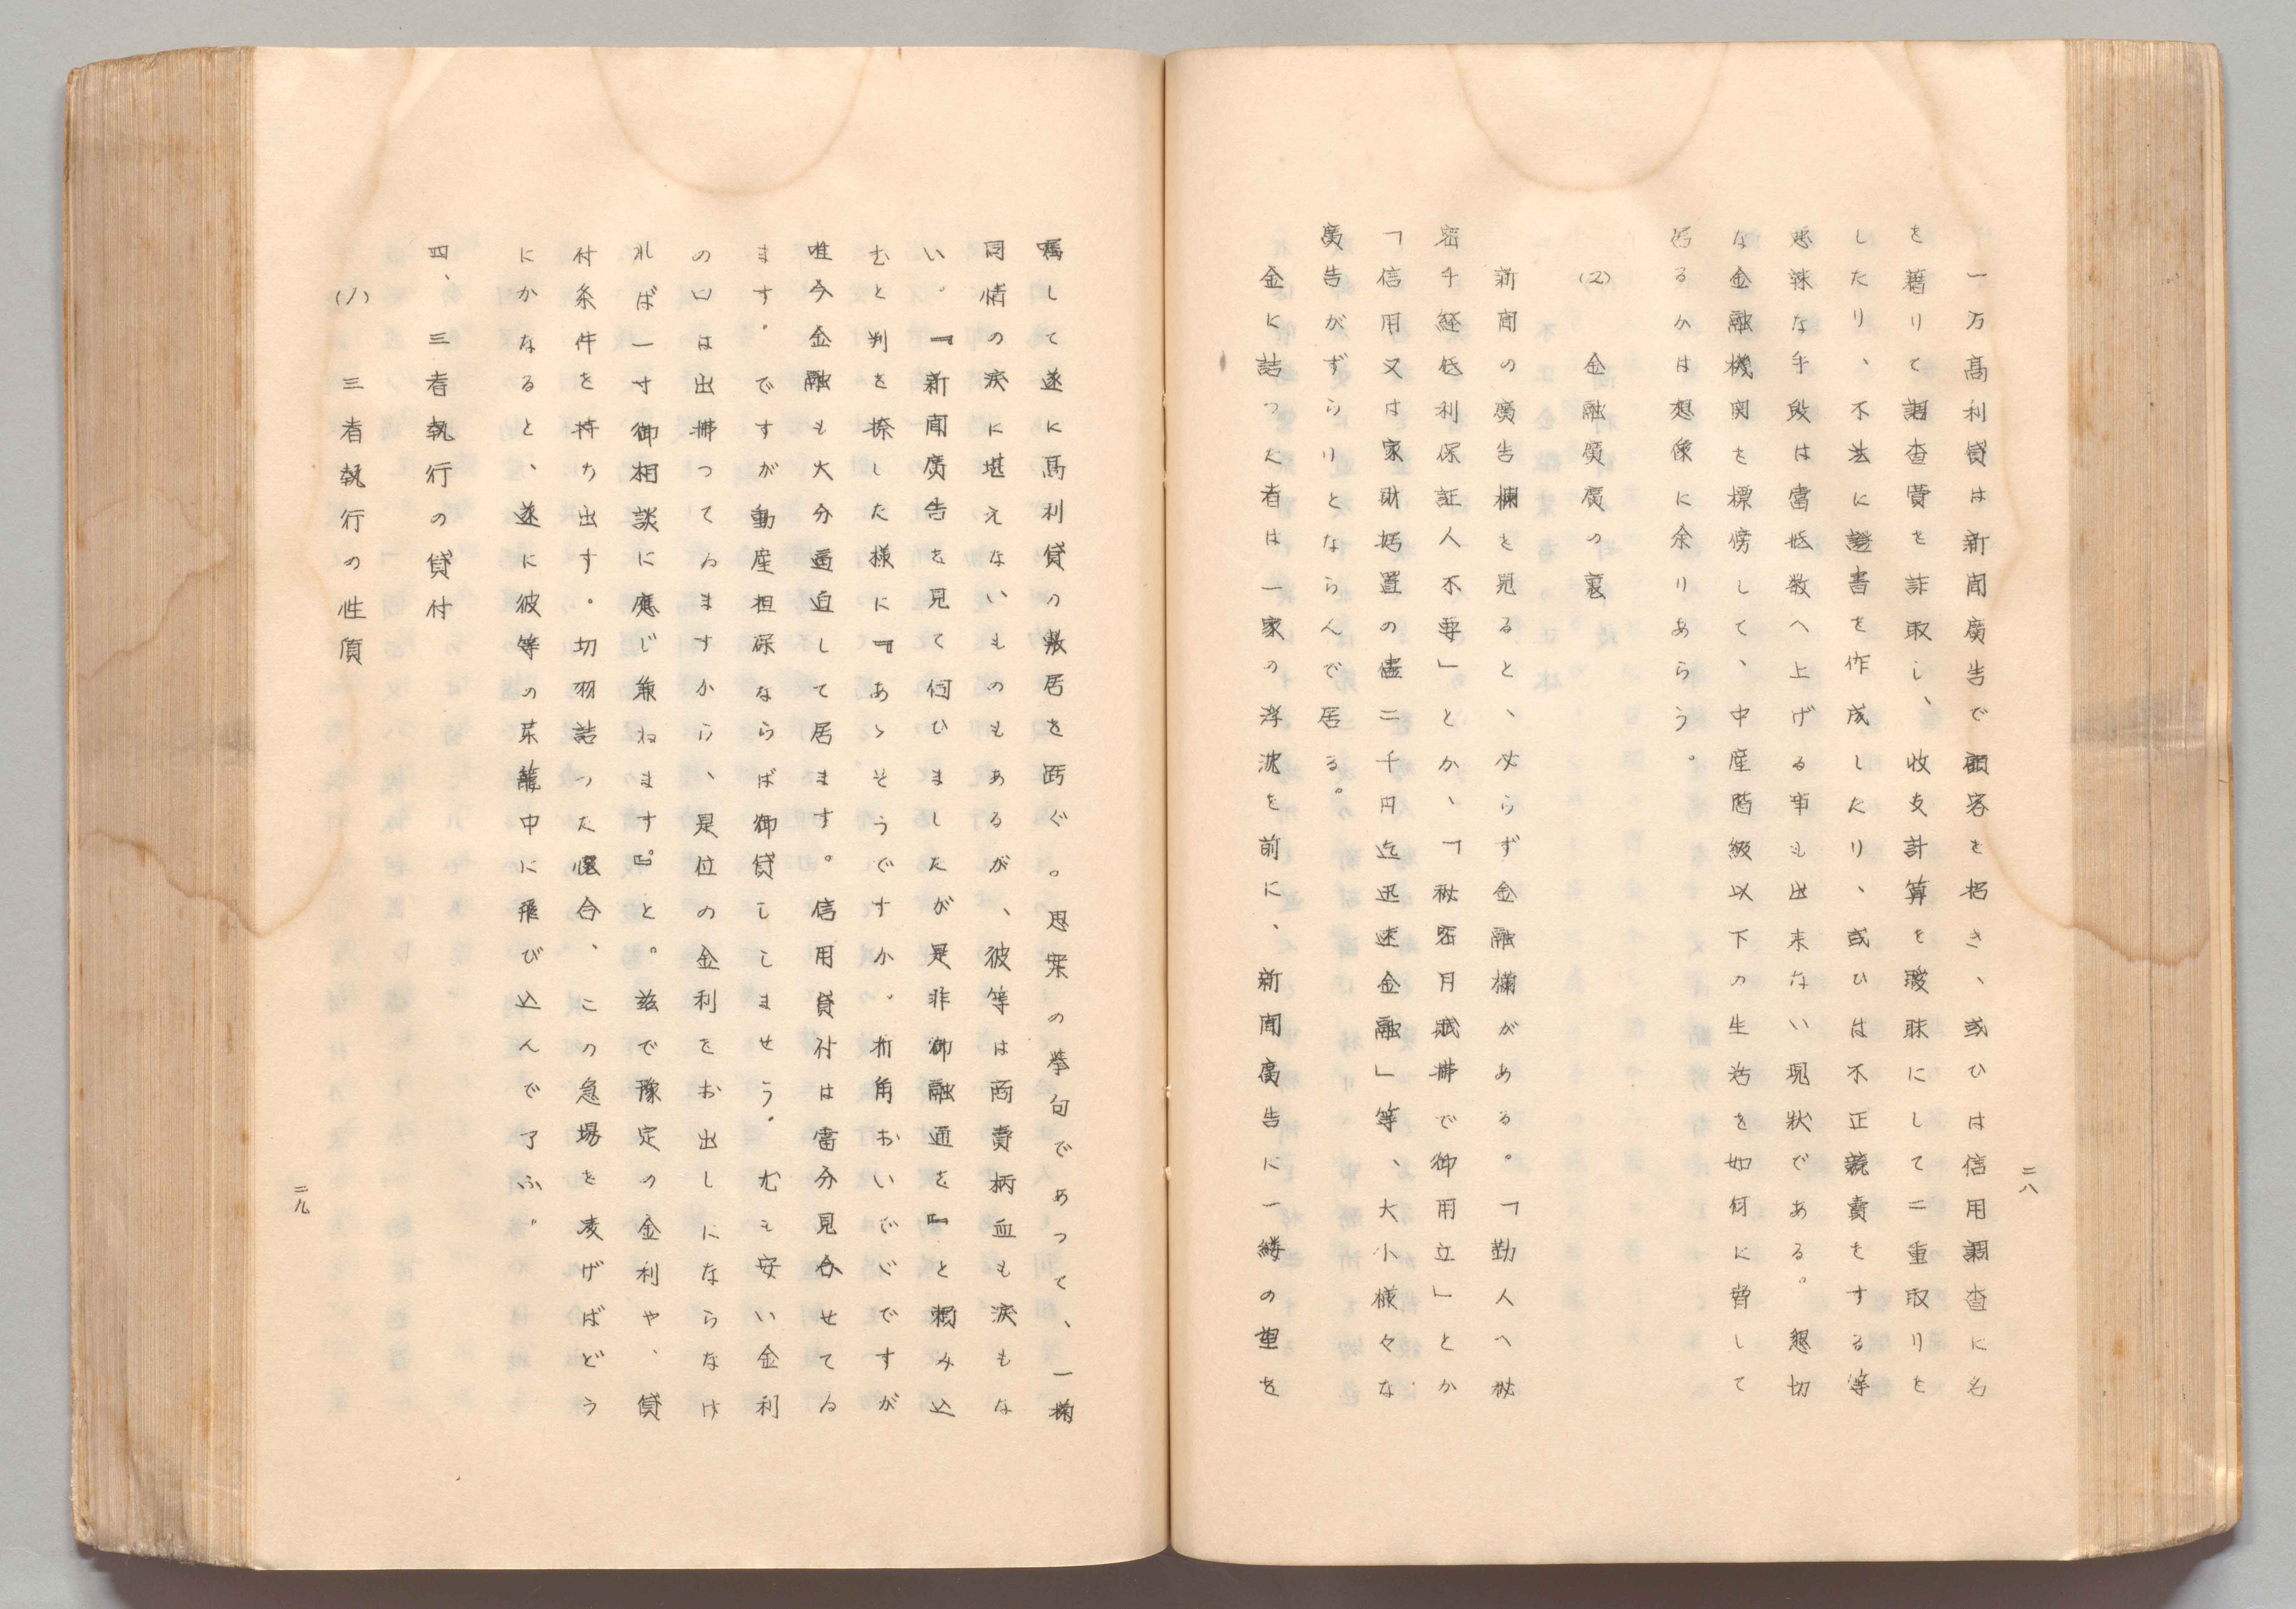 一万高利貸は新聞廣告で顧客を招き、或ひは信用調査に名
を藉りて調査費を詐取し、收支計算を曖昧にして二重取りを
したり、不法に證書を作成したり、或ひは不正競賣をする等
悪辣な手段は當抵数へ上げる事も出来ない現狀である。懇切
な金融機関を標傍して、中産階級以下の生活を如何に脅して
居るかは想像に余りあらう。
(2)　金融廣廣の裏
新聞の廣告欄を見ると、必らず金融欄がある。「勤人へ秘
密手経低利保証人不要」とか、「秘密月賦拂で御用立」とか
「信用又は家財据置の儘二千円迄迅速金融」等、大小様々な
廣告がずらりとならんで居る。
金に詰つた者は一家の浮沈を前に、新聞廣告に一縷の望を
二八
嘱して遂に高利貸の敷居を跨ぐ。思案の挙句であつて、一掬
同情の涙に堪えないものもあるが、彼等は商賣柄血も涙もな
い。『新聞廣告を見て伺ひましたが是非御融通を』と頼み込
むと判を捺した様に『あゝそうですか。折角おいででですが
唯今金融も大分逼迫して居ます。信用貸付は當分見合せてゐ
ます。ですが動産担保ならば御貸ししませう。尤も安い金利
の口は出拂つてゐますから、是位の金利をお出しにならなけ
れば一寸御相談に應じ兼ねます』。と。茲で豫定の金利や、貸
付条件を持ち出す。切羽詰つた懌合、この急場を凌げばどう
にかなると、遂に彼等の薬籠中に飛び込んで了ふ。
四、三者執行の貸付
(1)　三者執行の性質
二九